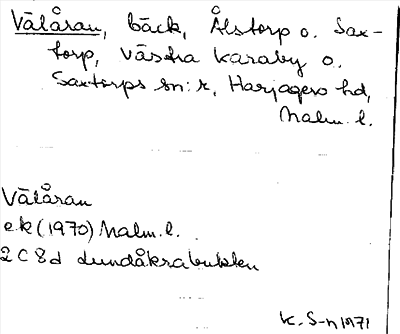 Välåran, bäck, Ålstorp o. Sax-
torp, Västra Karaby o.
Saxtorps sn:r, Harjagers hd,
Malm. l.
Välåran
ek (1970) Malm. l.
2 C 8 d Lundåkrabukten
K. S-n 1971